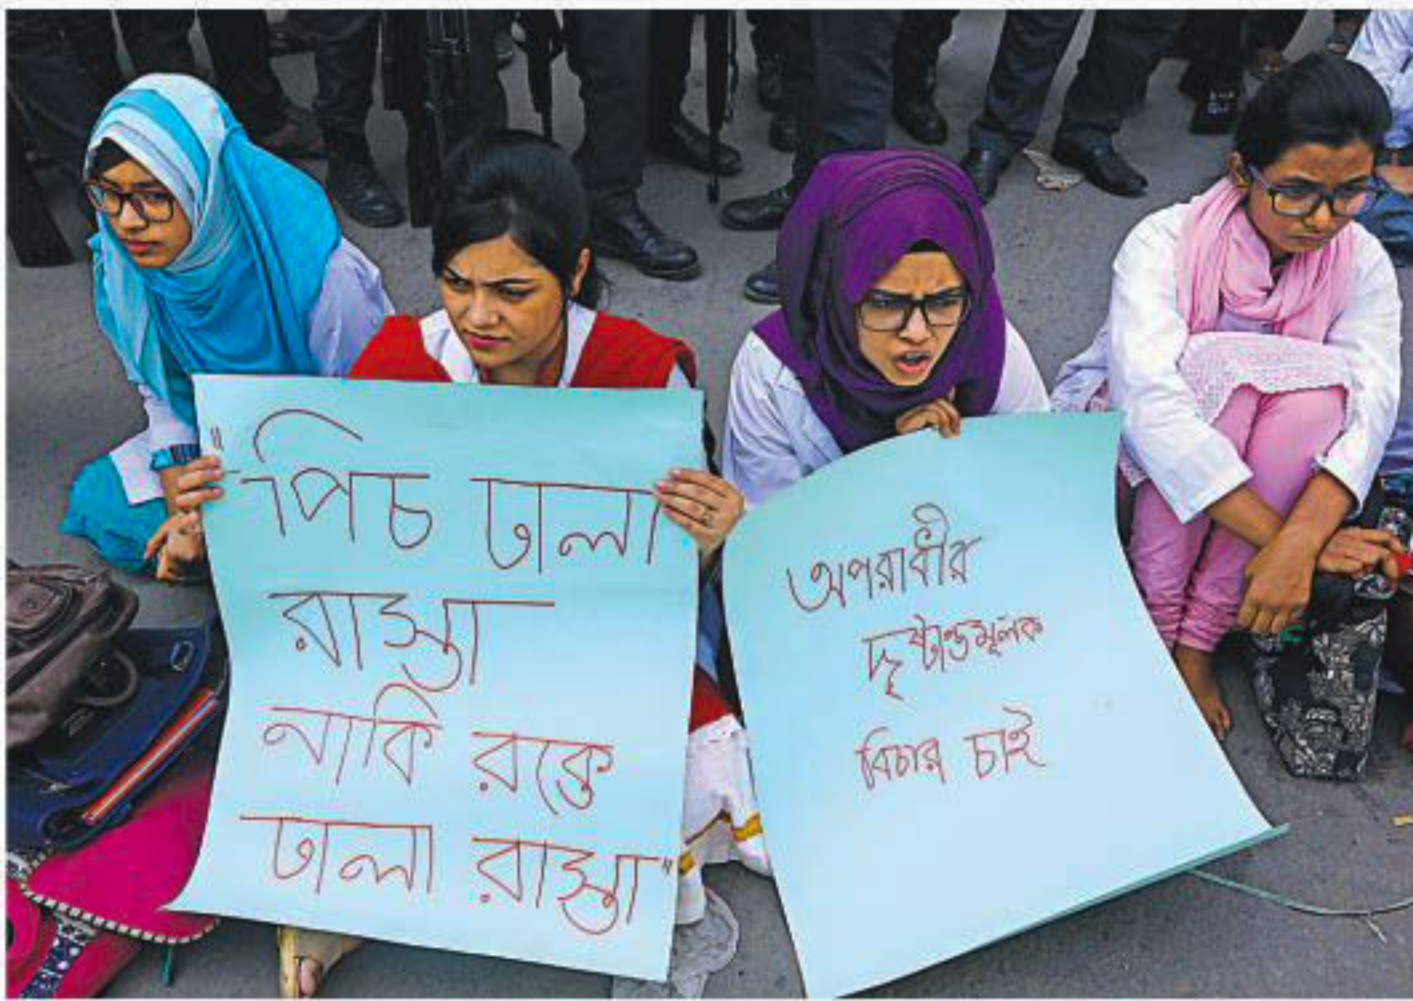 "পিচ ঢালা
রাস্তা
নাকি রক্তে
ঢালা রাস্তা"
অপরাধীর
দৃষ্টান্তমূলক
বিচার চাই